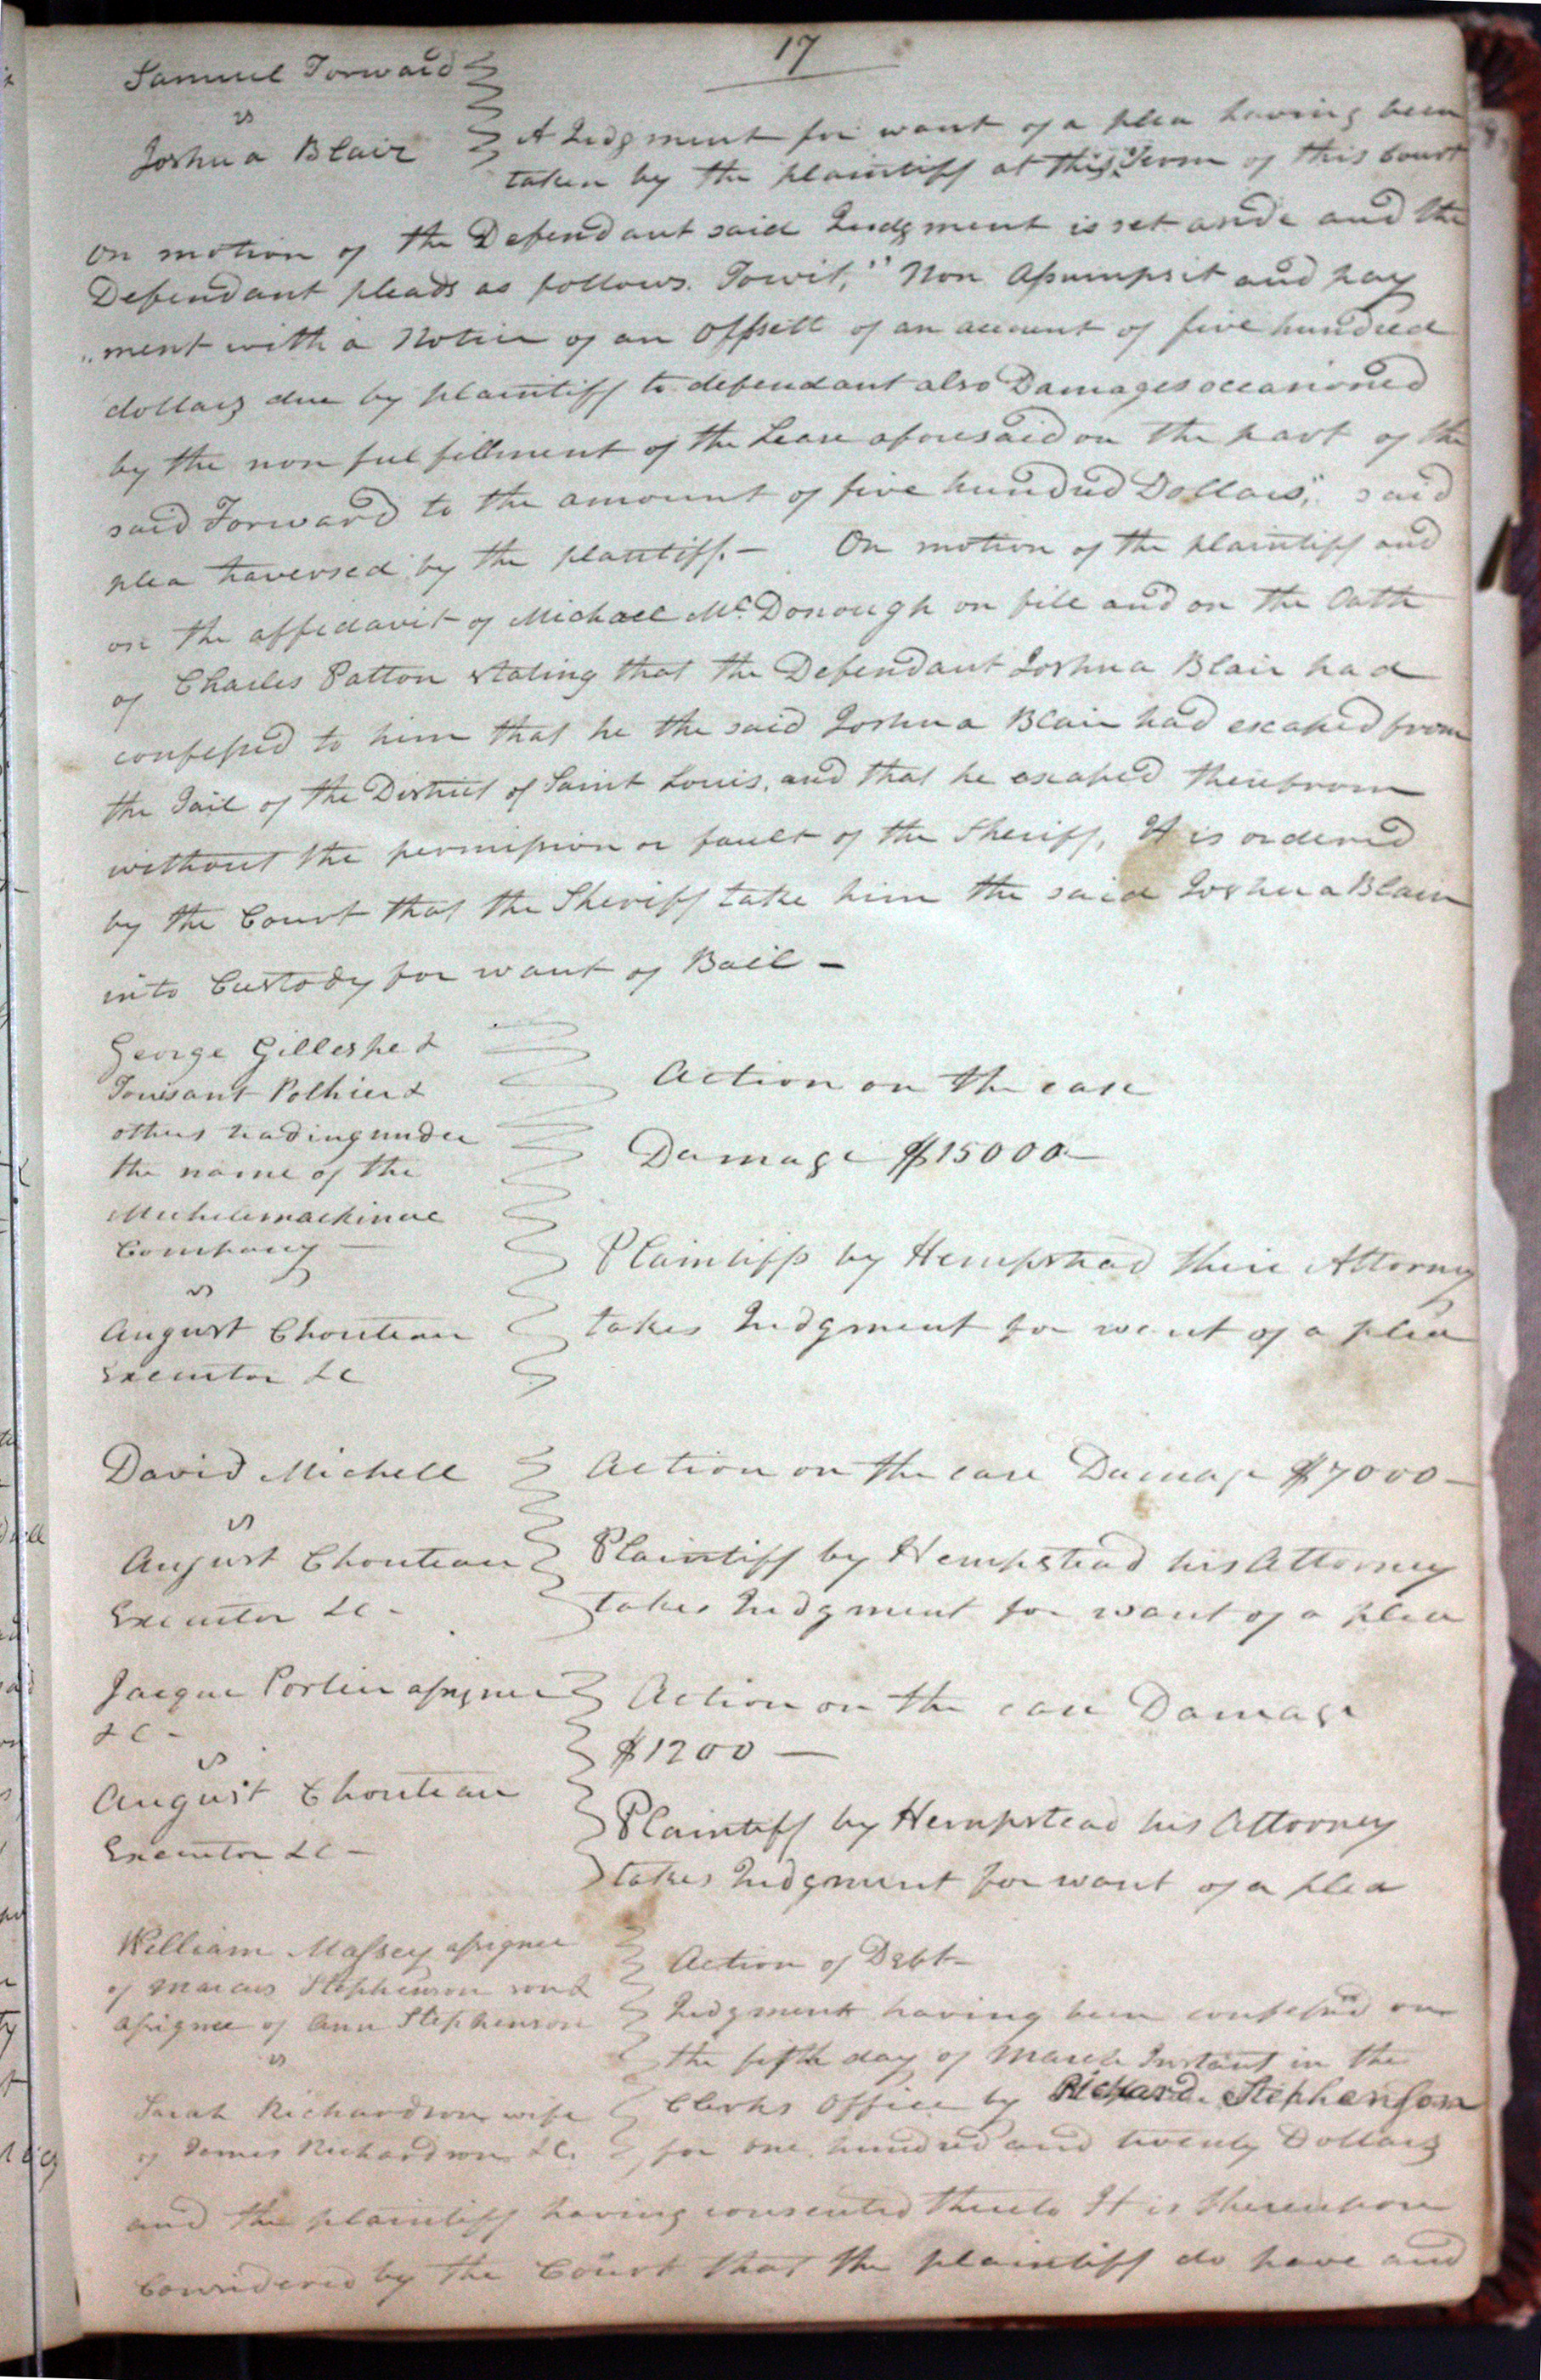 17
Samuel Forward
vs
Joshua Blair
A Judgment for want of a plea having been
taken by the plaintiff at this Term of this Court
on motion of the Defendant said Judgment is set aside and the
Defendant pleads as follows. Towit, "Non Assumpsit and pay
"ment with a Notice of an Offsett of an account of five hundred
dollars due by plaintiff to defendant also Damages occasioned
by the non fulfillment of the Lease aforesaid on the part of the
said Forward to the amount of five hundred Dollars," said
plea traversed by the plantiff. — On motion of the plaintiff and
on the affidavit of Michael McDonough on file and on the Oath
of Charles Patton stating that the Defendant Joshua Blair had
confessed to him that he the said Joshua Blair had escaped from
the Jail of the District of Saint Louis, and that he escaped therefrom
without the permission or fault of the Sheriff, It is ordered
by the Court that the Sheriff take him the said Joshua Blair
into Custody for want of Bail —
George Gillespe &
Tousant Pothier &
others trading under
the name of the
Michilimackinac
Company
vs
August Chouteau
Executor &c
Action on the case
Damage $15000—
Plaintiffs by Hempstead their Attorney
takes Judgment for want of a plea
David Michell
vs
August Chouteau
Executor &c —
Action on the case Damage $7000—
Plaintiff by Hempstead his Attorney
takes Judgment for want of a plea
Jacque Portier assignee
&c —
vs
August Chouteau
Executor &c —
Action on the case Damage
$1200 —
Plaintiff by Hempstead his Attorney
takes Judgment for want of a plea
William Massey assignee
of Marcus Stephenson
assignee of Ann Stephenson
vs
Sarah Richardson wife
of James Richardson &c.
Action of Debt—
Judgment having been confessed on
the fifth day of March Instant in the
Clerks Office by Richard Stephenson
for one hundred and twenty Dollars
and the plaintiff having consented thereto It is thereupon
Considered by the Court that the plaintiff do have and